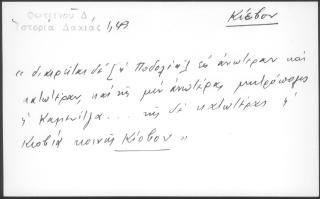 Φωτεινού Δ.
Ἱστορία Δακίας 1,49
Κίοβον
« διαιρεῖται δὲ [ἡ Ποδολία] εἰς ἀνωτέραν καὶ
κατωτέραν, καὶ τῆς μὲν ἀνωτέρας μητρόπολις
ἡ Καμενίτζα... τῆς δὲ κατωτέρας ἡ
Κιοβία κοινῶς Κίοβον »